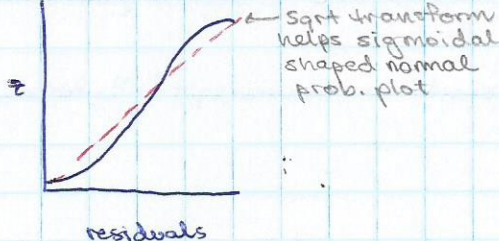 ← Sqrt transform
helps sigmoidal
shaped normal
prob. plot
z
residuals